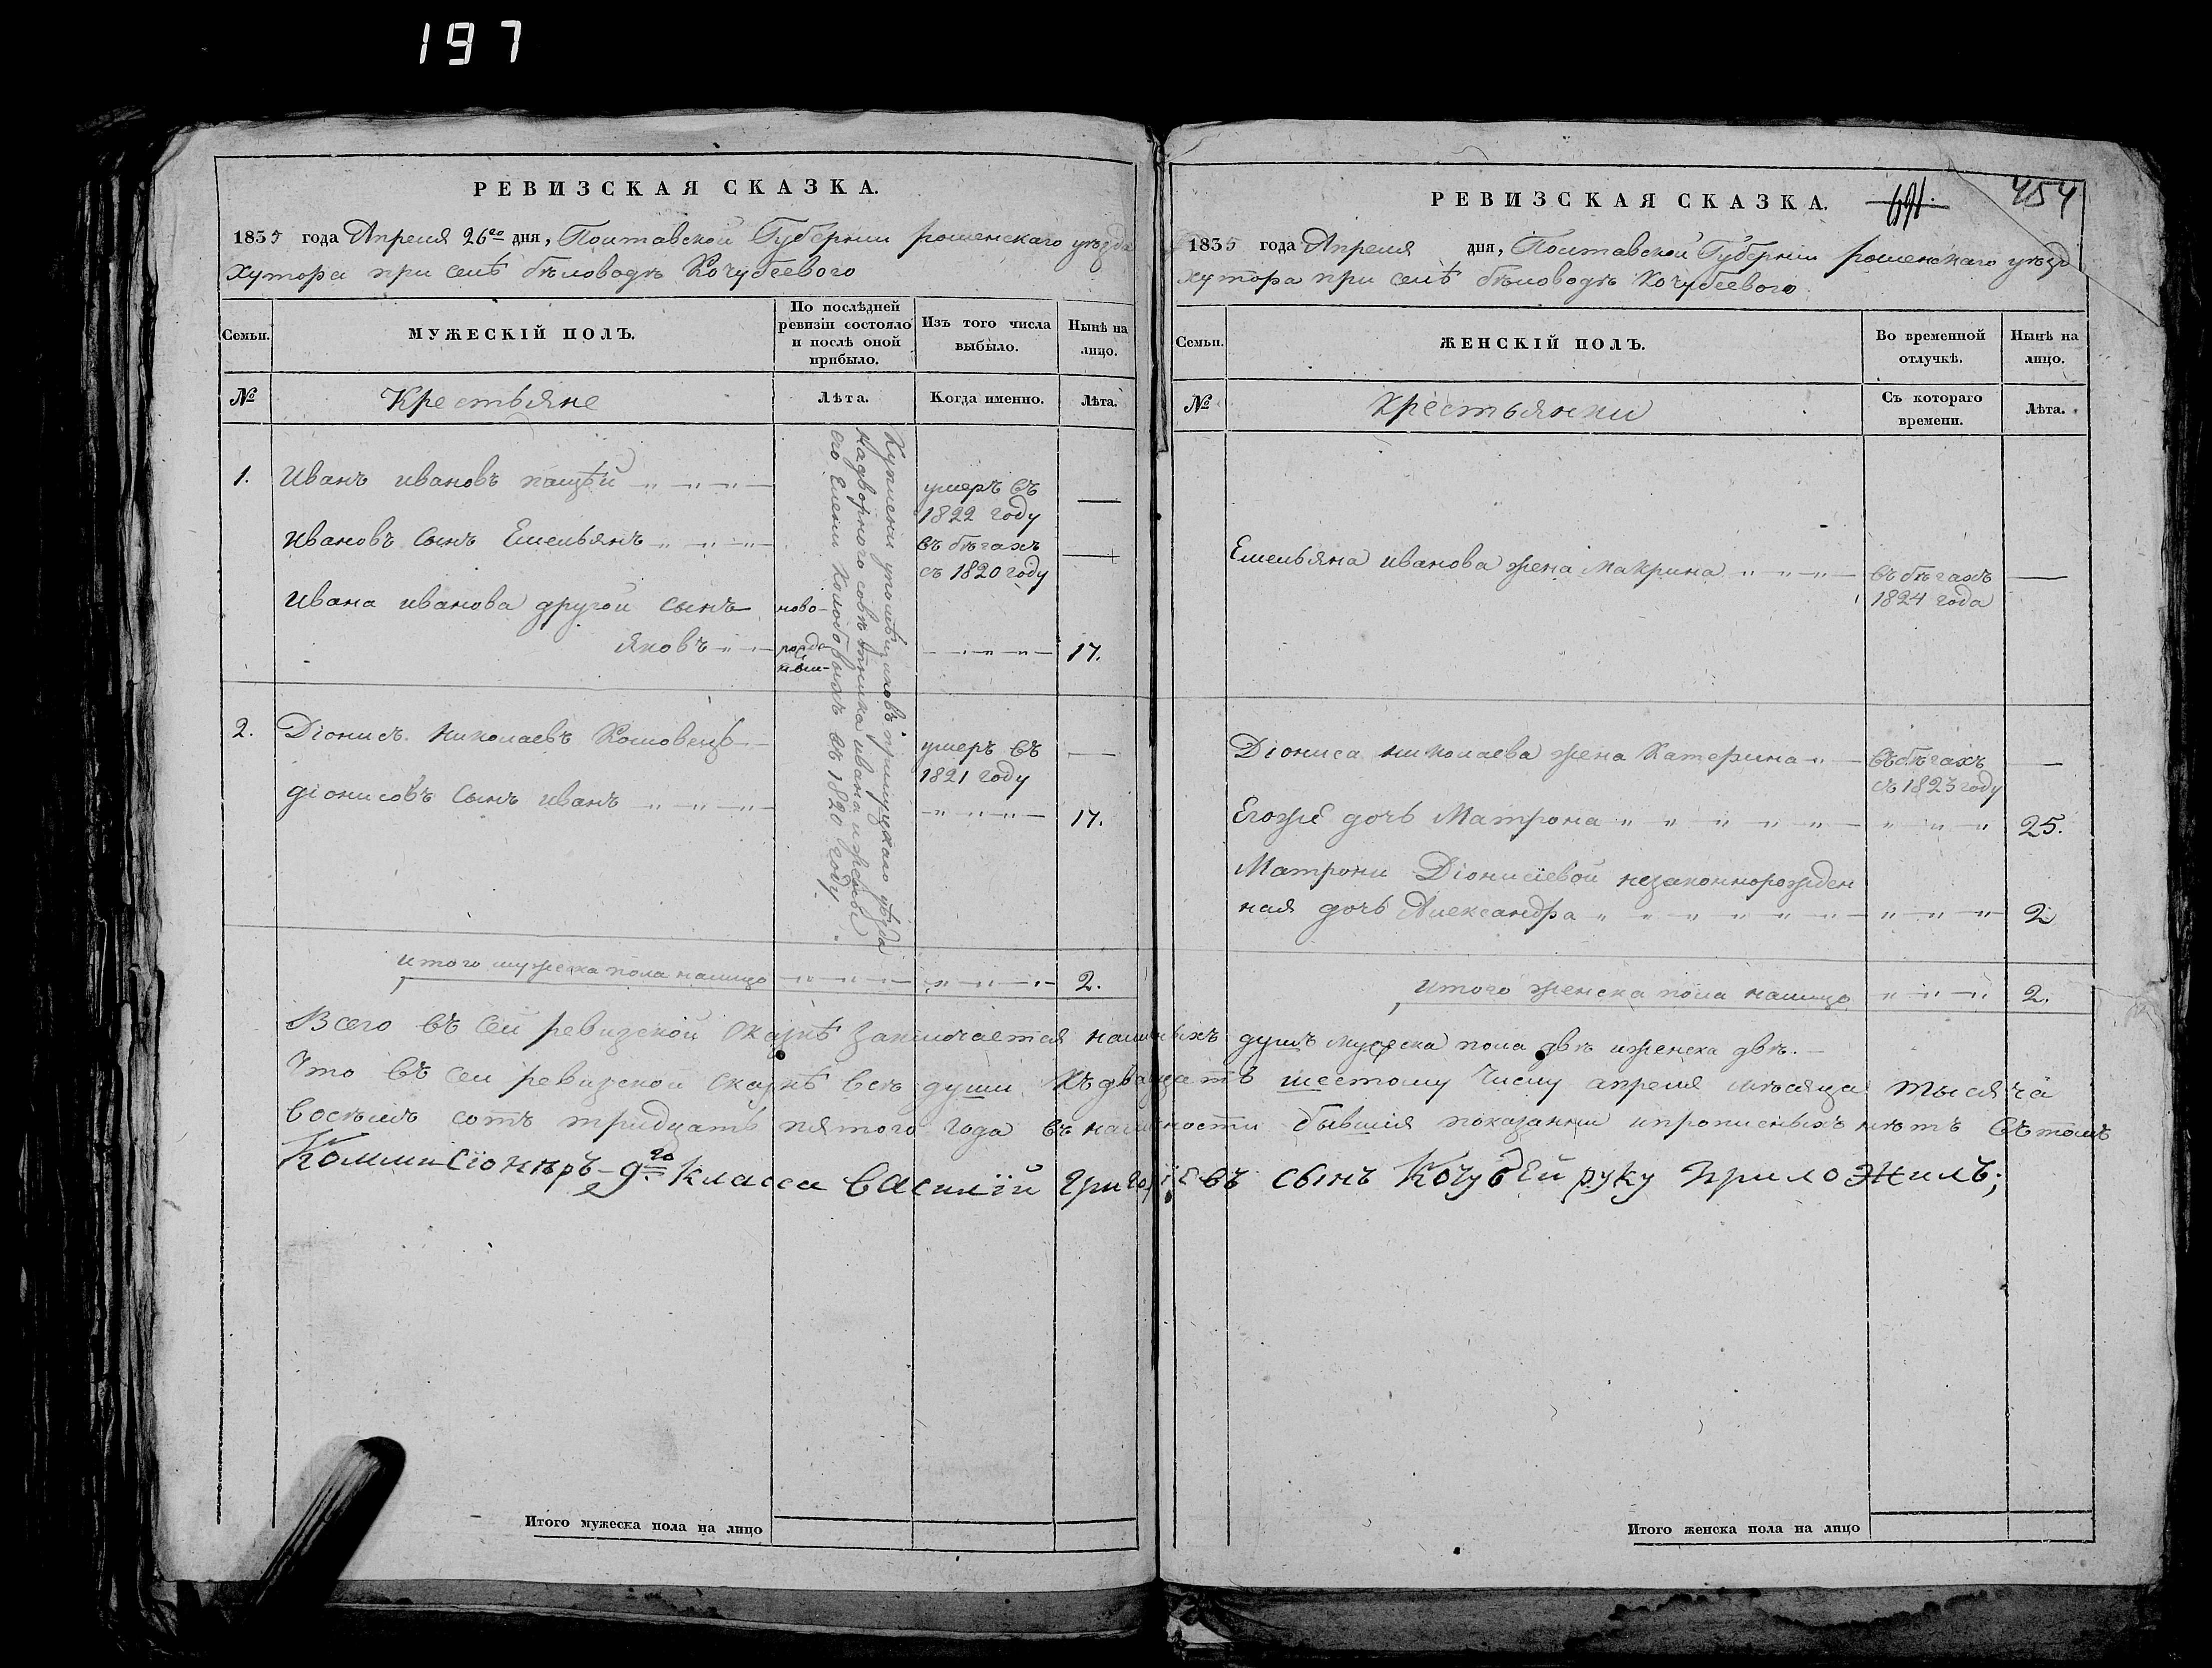 197
РЕВИЗСКАЯ СКАЗКА.
1835 года Апреля 26го дня, Полтавской Губернии роменскаго уезда
хутора при селѣ бѣловодѣ Кочубеевого
Семьи.
МУЖЕСКІЙ ПОЛЪ.
По послѣдней ревизіи состояло и послѣ оной прибыло.
Изъ того числа выбыло.
Нынѣ на лицо.
№
Крестьяне
Лѣта.
Когда именно.
Лѣта.
1. Иванъ ивановъ
умеръ въ
1822 году
ивановъ сынъ Емельянъ
въ бѣгахъ
съ 1820 году
ивана иванова другой сынъ
ново-
яковъ
рожде
17.
2. Діонисъ николаевъ
умеръ въ
1821 году
діонисовъ сынъ иванъ
17.
Куплени у помѣщиковъ прилуцкаго уѣзда
надворного совѣтника ивана и жены
его Елени въ 1820 году.
итого мужеска пола налицо 2.
Всего въ сей ревизской скаскѣ заключается наличныхъ душъ мужеска пола двѣ и женска двѣ.
Что въ сей ревизской скаскѣ всѣ души къ двадцать шестому числу апреля мѣсяца тысяча
восѣмъ сотъ тридцать пятого года въ наличности бывшія показанни и прописныхъ нѣтъ въ томъ
Коммисіонѣръ 9го класса василій григоріевъ сынъ Кочубей руку приложилъ;
Итого мужеска пола на лицо
РЕВИЗСКАЯ СКАЗКА.
691.
454
1835 года Апреля дня, Полтавской Губернии роменскаго уезд
хутора при селѣ бѣловодѣ Кочубеевого
Семьи.
ЖЕНСКІЙ ПОЛЪ.
Во временной отлучкѣ.
Нынѣ на лицо.
№
Крестьянки
Съ котораго времени.
Лѣта.
Емельяна иванова жена Макрина
въ бѣгахъ
1824 года
Діониса николаева жена Катерина
въ бѣгахъ
съ 1823 году
Егоже дочь Матрона 25.
Матрони Діонисіевой незаконнорожден
ная дочь Александра 2
итого женска пола налицо 2.
Итого женска пола на лицо